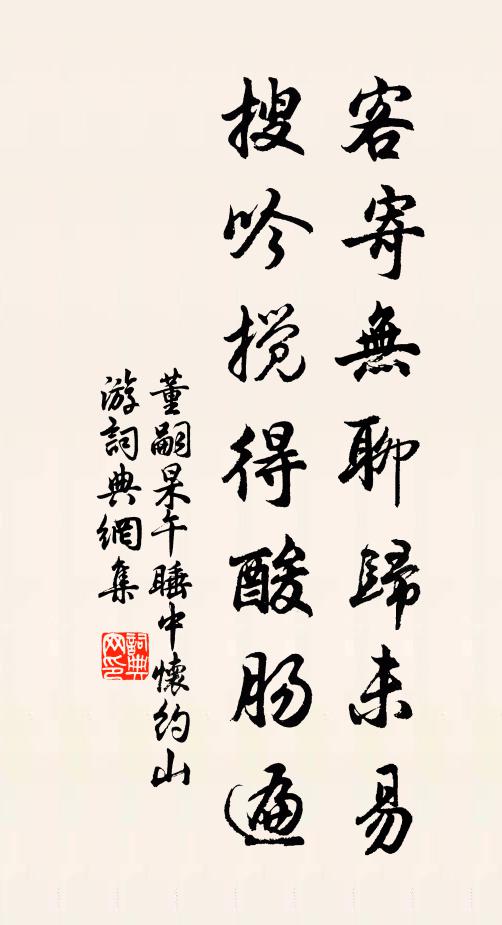 客寄無聊歸未易
搜吟攪得酸肠遍
董嗣杲午睡中懷約山
游詞典網集
詞典
网印